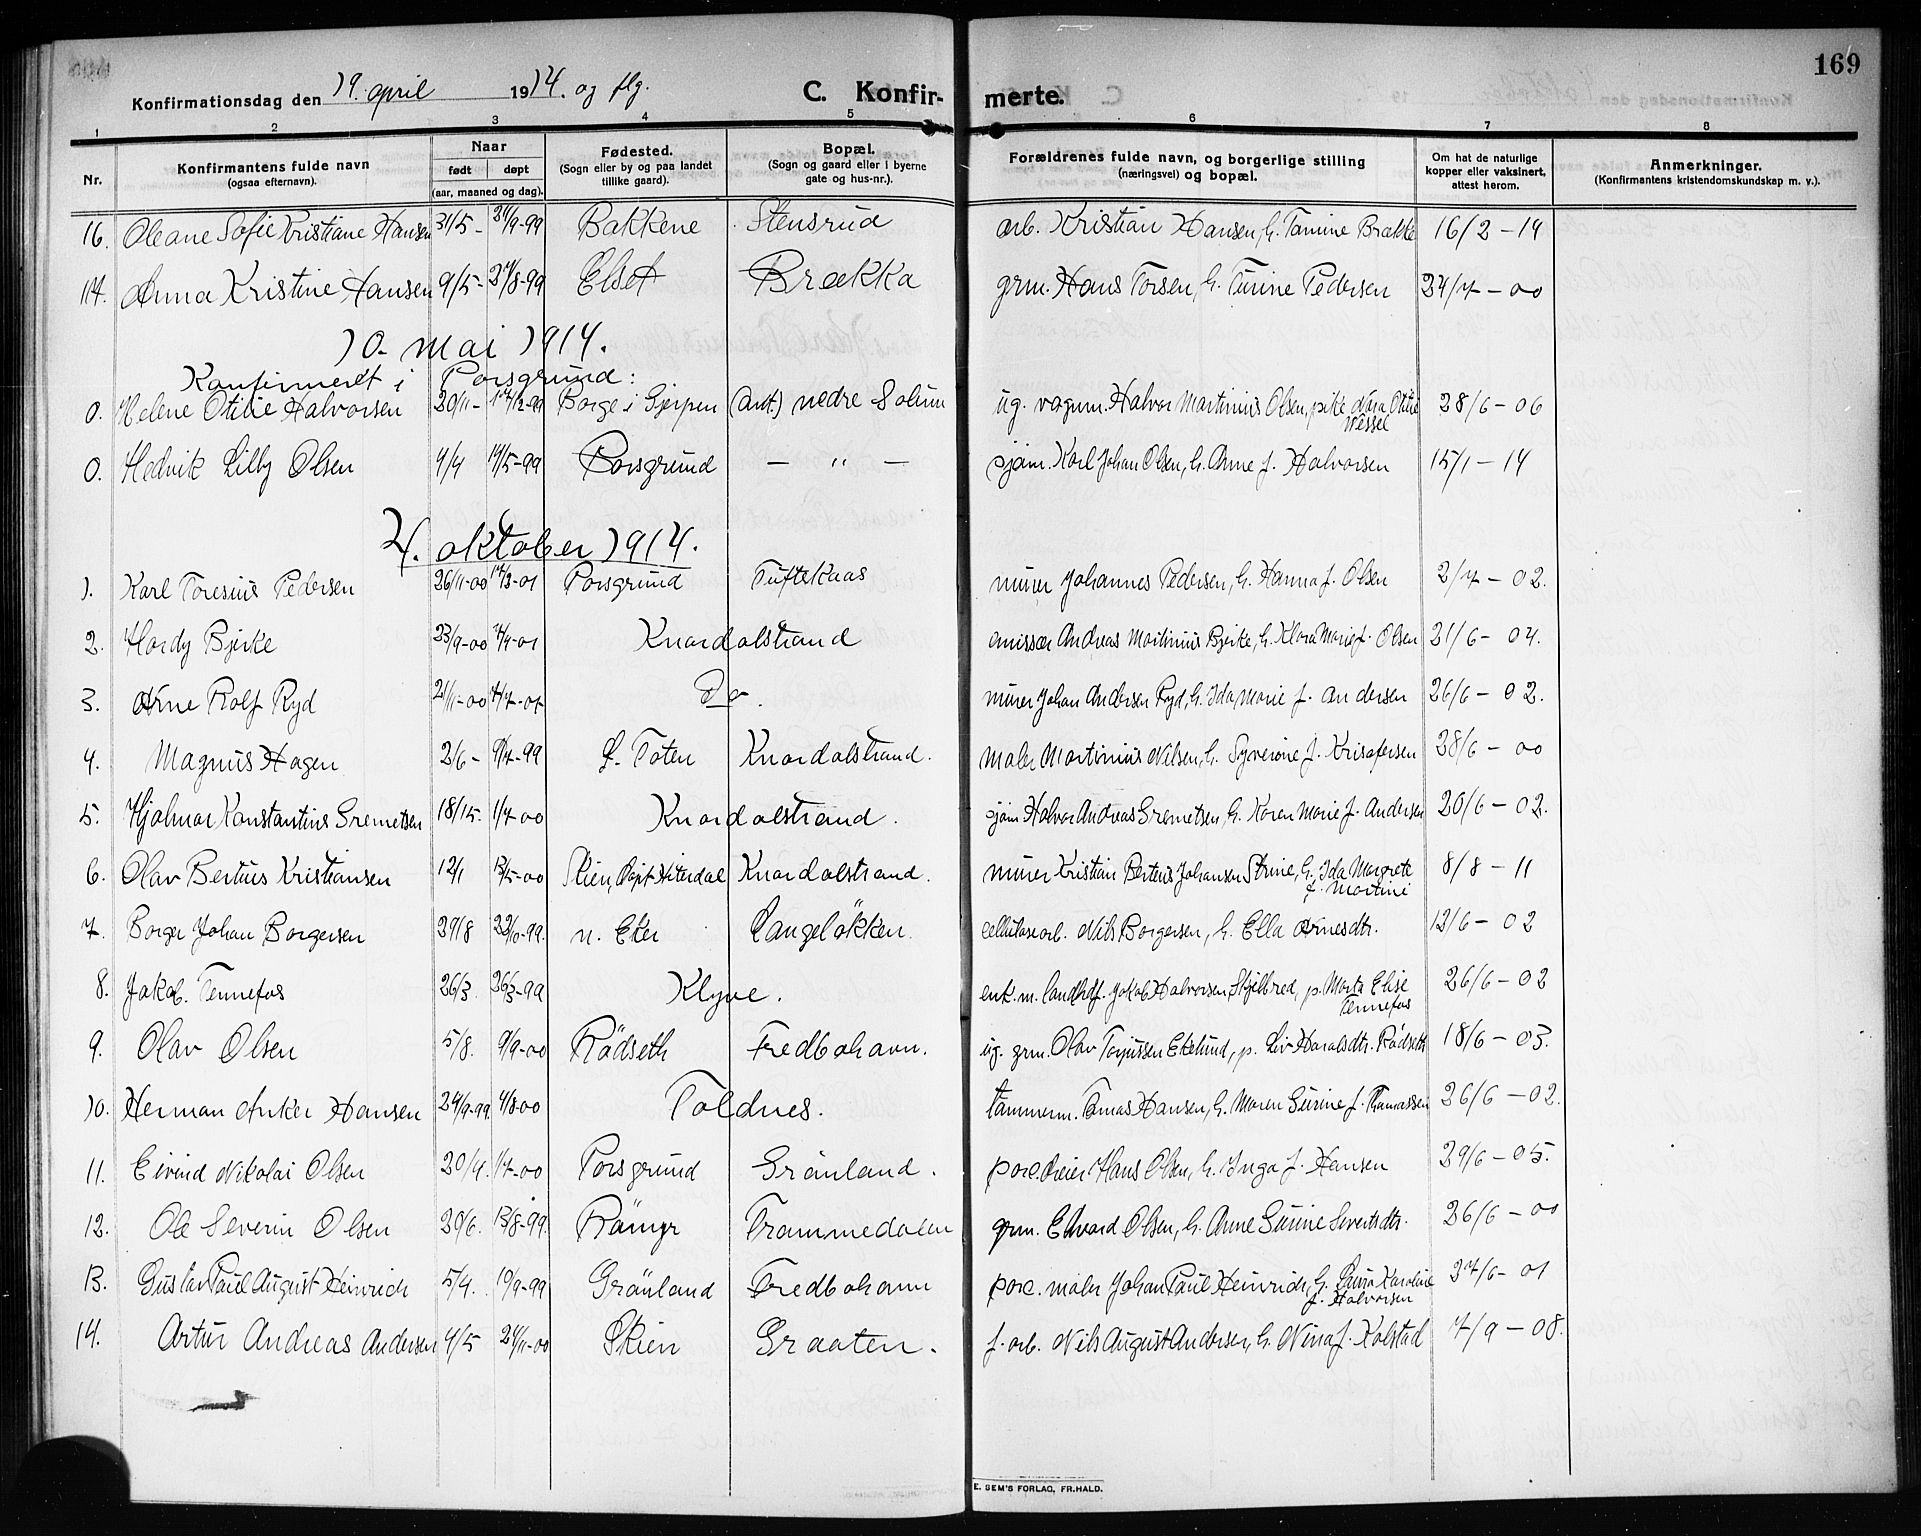 169
Konfirmationsdag den 19. april 1914. og flg. C. Konfir- merte.
1 2 3 4 5 6 7 8
Nr. Konfirmantens fulde navn (ogsaa efternavn). Naar født døpt (aar, maaned og dag). Fødested. (Sogn eller by og paa landet tillike gaard). Bopæl. (Sogn og gaard eller i byerne gate og hus-nr.). Forældrenes fulde navn, og borgerlige stilling (næringsvei) og bopæl. Om hat de naturlige kopper eller vaksinert, attest herom. Anmerkninger. (Konfirmantens kristendomskundskap m. v.).
16. Oleane Sofie Kristiane Hansen 31/5- 24/9-99 Bakkene Stensrud arb. Kristian Hansen, h. Tamine Brække 16/2-14
17. Anna Kristine Hansen 9/5- 27/8-99 Elset Brækka grm. Hans Torsen, h. Turine Pedersen 24/7-00
10. mai 1914.
Konfirmert i Porsgrund:
0. Helene Otilie Halvorsen 20/11- 17/12-99 Borge i Gjerpen (Ant.) nedre Solum ug. vognm. Halvor Martinius Olsen, pike Nora Otilie Wessel 28/6-06
0. Hedvik Lilly Olsen 4/4 14/5-99 Porsgrund - " - sjøm. Karl Johan Olsen, h. Anne f. Halvorsen 15/1-14
4. oktober 1914.
1. Karl Toresius Pedersen 26/11-00 17/3-01 Porsgrund Tuftekaas murer Johannes Pedersen, h. Hanna f. Olsen 2/7-02.
2. Hardy Bjerke 23/9-00 7/4-01 Knardalstrand emissær Andreas Martinius Bjerke, h. Klara Marie f. Olsen 21/6-04.
3. Arne Rolf Ryd 21/11-00 7/7-01 Do. murer Johan Andersen Ryd, h. Ida Marie f. Andersen 26/6-02.
4. Magnus Hagen 2/6- 9/7-99 Ø. Toten Knardalstrand. maler Martinius Nilsen, h. Syverine f. Krisofersen 28/6-00
5. Hjalmar Konstantius Gremetsen 18/15. 1/7-00 Knardalstrand. sjøm Halvor Andreas Gremetsen, h. Karen Marie f. Andersen 20/6-02.
6. Olav Bertius Kristiansen 12/1 13/5-00 Skien, døpt Hiterdal Knardalstrand. murer Kristian Bertius Johansen Strine, h. Ida Margrete f. Martini 8/8-11
7. Borger Johan Borgersen 29/8 22/10-99. n. Eker Langeløkken celluloseorb. Nils Borgersen, h. Ella Arnesdtr. 12/6-02
8. Jakob. Tennefos 26/3. 26/3-99 Klyve. enk.m. landhdl. Jakob Halvorsen Skjelbred, p. Marta Elise Tennefos 26/6-02
9. Olav Olsen 5/8. 9/9-00 Rødseth Fredbohavn. ug. grm. Olav Torjussen Ekelund, p. Liv Haraldsdtr. Rødseth 18/6-03.
10. Herman Anker Hansen 24/9-99 4/8-00 Toldnes. tømmerm. Tomas Hansen, h. Maren Surine f. Thomassen 26/6-02.
11. Eivind Nikolai Olsen 20/4. 1/7-00 Porsgrund Grønland. porc.dreier Hans Olsen, h. Inga f. Hansen 29/6-05.
12. Ole Severin Olsen 20/6. 13/8-99. Rømyr Frammedalen grm. Edvard Olsen, h. Anne Surine Sivertsdtr. 26/6-00
13. Gustav Paul August Heinrich 5/4. 10/9-99 Grønland Fredbohavn porc. maler Johan Paul Heinrich, h. Luisa Karoline f. Halvorsen 27/6-01
14. Artur Andreas Andersen 4/5 24/11-00 Skien Graaten. f. arb. Nils August Andersen, h. Nina f. Kolstad 7/9-08.
E. SEM'S FORLAG, FR.HALD.